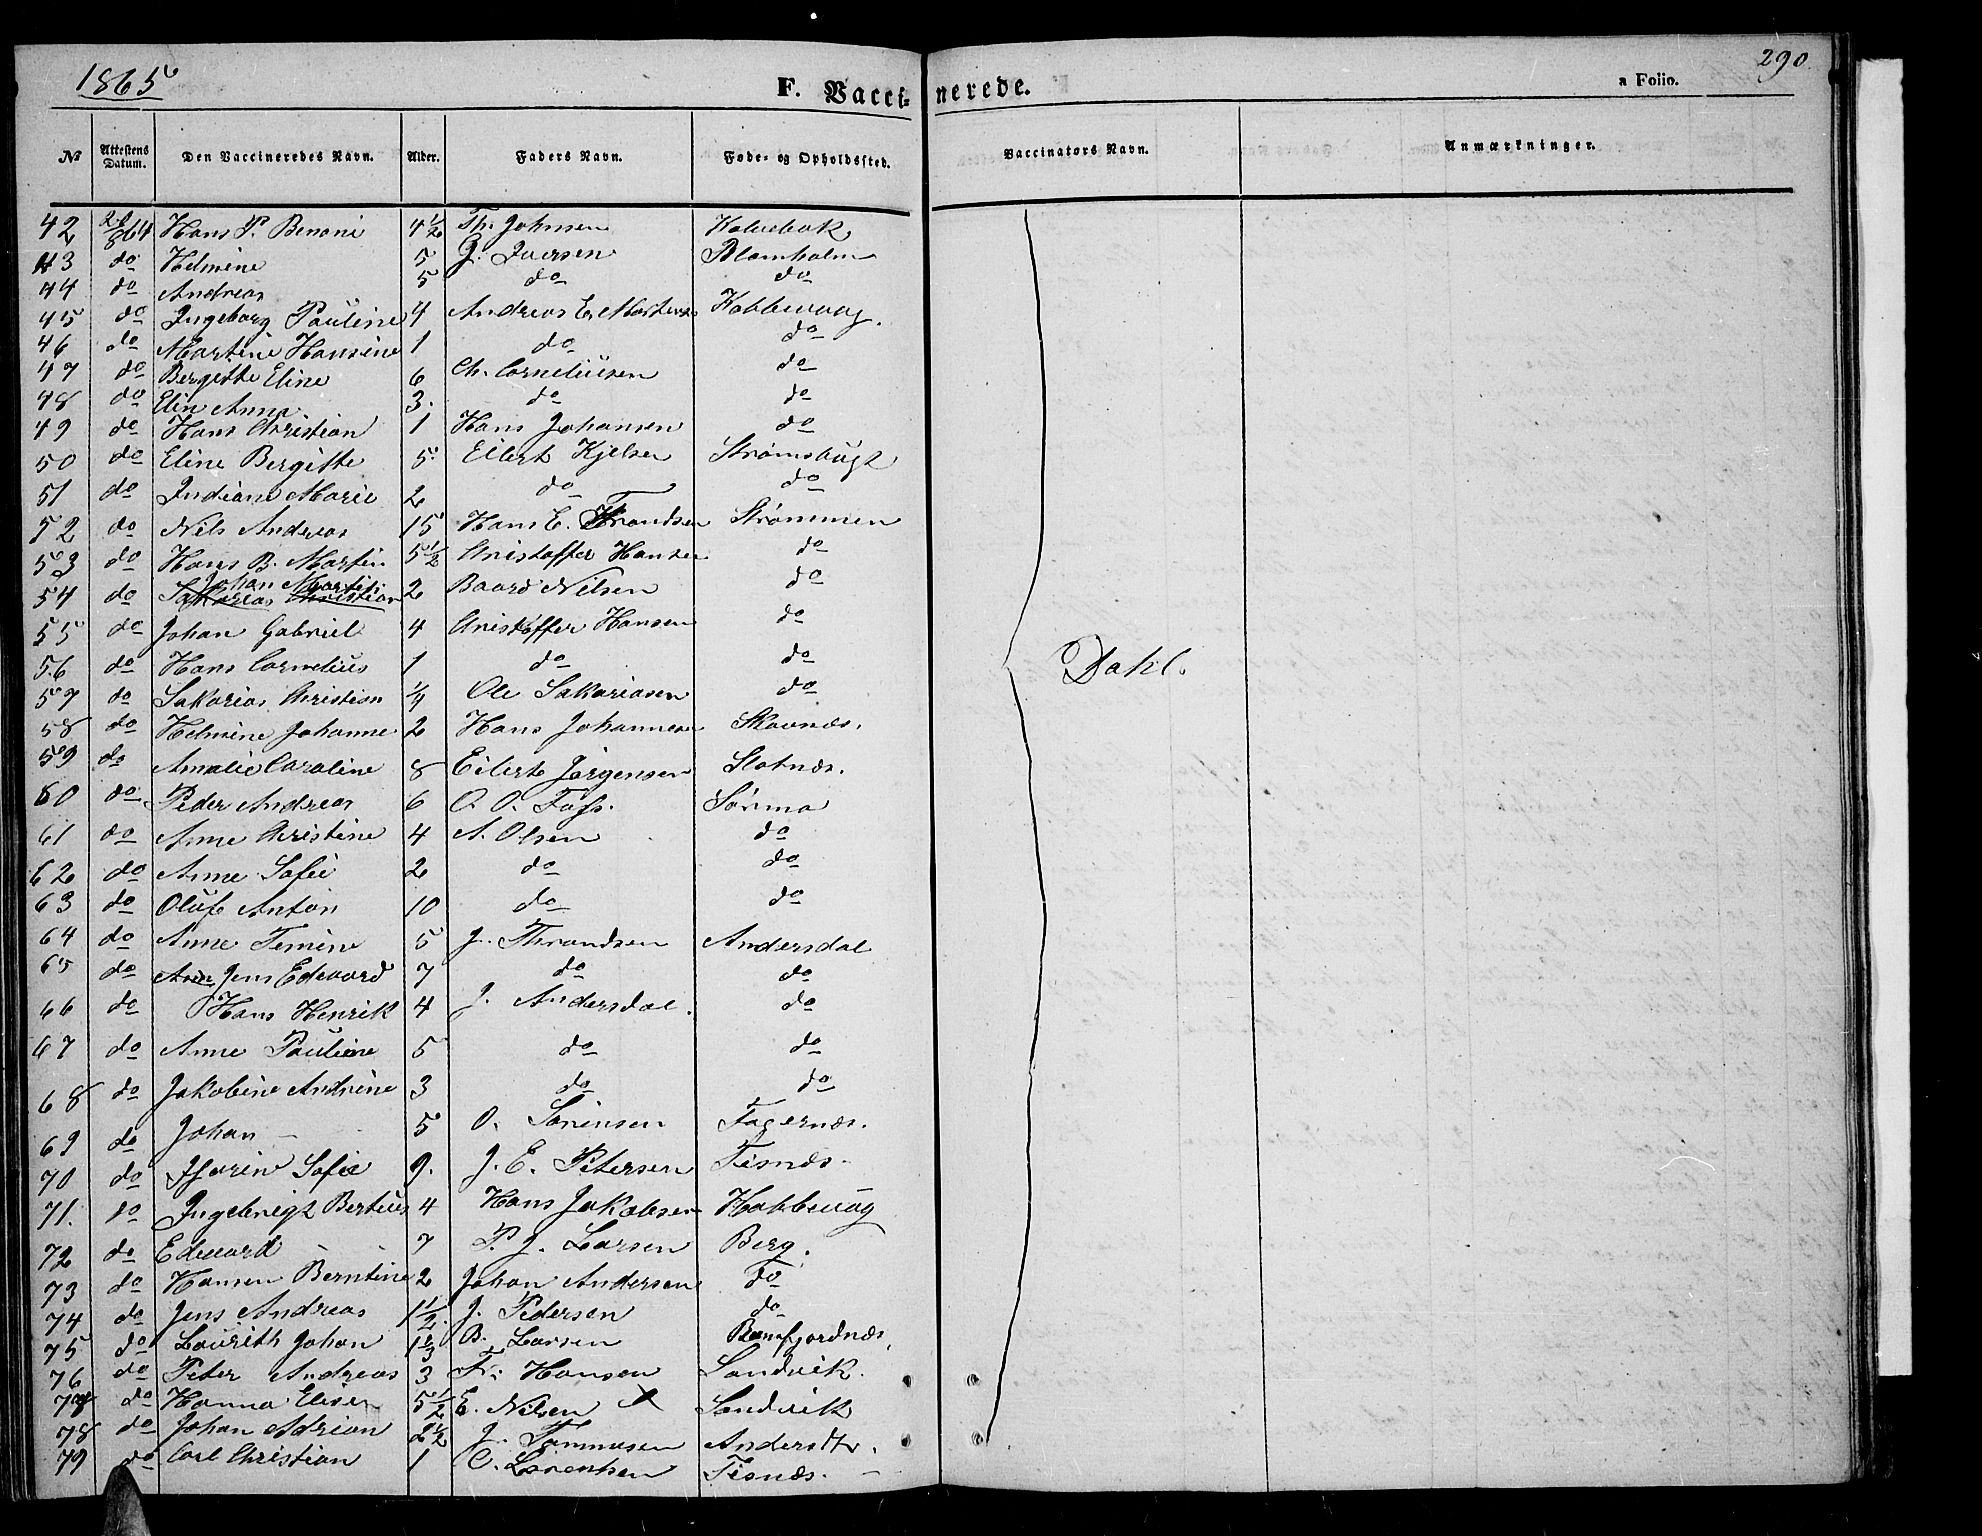 1865 F. Vaccinerede. a Folio. 290.
No Attestens Datum. Den Vaccineredes Navn. Alder. Faders Navn. Føde- og Opholdssted. Vaccinators Navn. Anmærkninger.
42 Hans P. Benoni 4½ Th. Johnsen
43 do Helmine 5 J. Iversen Blomholm
44 do Andreas 5 do do
45 do Ingeborg Pauline 4 Andreas E. Mortensen
46 do Martine Hansine 1 do do
47 do Bergitte Eline 6 Ch. Corneliusen do
48 do Elin Anna 3. do do
49 do Hans Christian 1 Hans Johansen do
50 do Eline Bergitte 5. Eilert Kjelsen Strømsbugt
51 do Indiane Marie 2 do do
52 do Nils Andreas 15 Hans E. Trondsen Strømmen
53 do Hans B. Martin 5½ Cristoffer Hansen do
Johan Martin
54 do Sakarias Christian 2 Baard Nilsen do
55 do Johan Gabriel 4 Cristoffer Hansen do
56 do Hans Cornelius 1 do do
57 do Sakarias Christian Ole Sakariasen do
58 do Helmine Johanne 2 Hans Johannesen Skovnæs.
59 do Amalie Caroline 8 Eilert Jørgensen Slotnæs.
60 do Peder Andreas 6 O. O. Foss.
61 do Anne Christine 4 A. Olsen do
62 do Anne Sofie 2 do do
63 do Oluf Anton 10 do do
64 do Anne Temine 5 J. Throndsen Andersdal
65 do Jens Edvard 7 do do
66 do Hans Henrik 4 J. Andersdal. do
67 do Anne Pauline 5 do do
68 do Jakobine Andrine 3 do do
69 do Johan 5 O. Sørensen Fagernæs.
70 do Sofie 9. J. E. Petersen Tisnæs.
71. do Ingebrigt Bertius 4 Hans Jakobsen
72 do Edvard 7 P. J. Larsen Berg.
73 do Hansen Berntine 2 Johan Andersen Do
74 do Jens Andreas 1½. J. Pedersen do
75 do Laurith Johan 1⅓ B. Larsen Ramfjordnæs.
76 do Peter Andreas 3 Fr: Hansen Sandvik.
do Hanna Elisen 5½ E. Nilsen x Sandvik
78 do Johan Adrian 2½ J. Tommesen
79 do Carl Christian 1 C. Lorentsen Tisnæs.
Dahl.